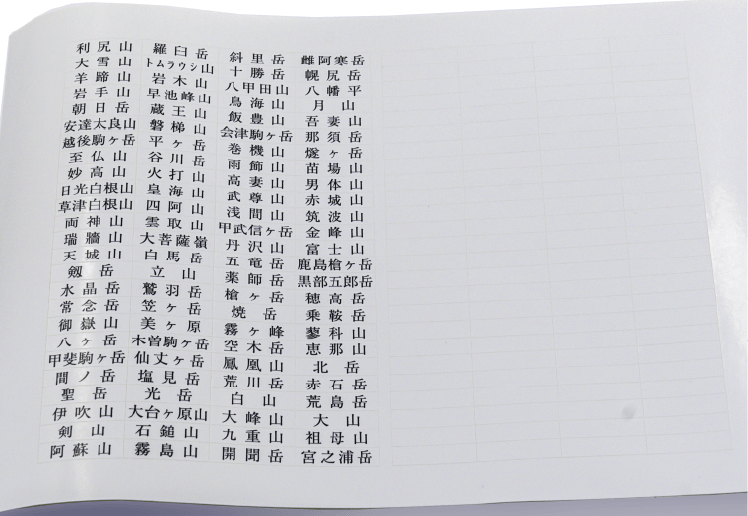 利尻山 羅臼岳 斜里岳 雌阿寒岳
大雪山 トムラウシ山 十勝岳 幌尻岳
羊蹄山 岩木山 八甲田山 八幡平
岩手山 早池峰山 鳥海山 月山
朝日岳 蔵王山 飯豊山 吾妻山
安達太良山 磐梯山 会津駒ヶ岳 那須岳
越後駒ヶ岳 平ヶ岳 巻機山 燧ヶ岳
至仏山 谷川岳 雨飾山 苗場山
妙高山 火打山 高妻山 男体山
日光白根山 皇海山 武尊山 赤城山
草津白根山 四阿山 浅間山 筑波山
両神山 雲取山 甲武信ヶ岳 金峰山
瑞牆山 大菩薩嶺 丹沢山 富士山
天城山 白馬岳 五竜岳 鹿島槍ヶ岳
剱岳 立山 薬師岳 黒部五郎岳
水晶岳 鷲羽岳 槍ヶ岳 穂高岳
常念岳 笠ヶ岳 焼岳 乗鞍岳
御嶽山 美ヶ原 霧ヶ峰 蓼科山
八ヶ岳 木曽駒ヶ岳 空木岳 恵那山
甲斐駒ヶ岳 仙丈ヶ岳 鳳凰山 北岳
間ノ岳 塩見岳 荒川岳 赤石岳
聖岳 光岳 白山 荒島岳
伊吹山 大台ヶ原山 大峰山 大山
剣山 石鎚山 九重山 祖母山
阿蘇山 霧島山 開聞岳 宮之浦岳